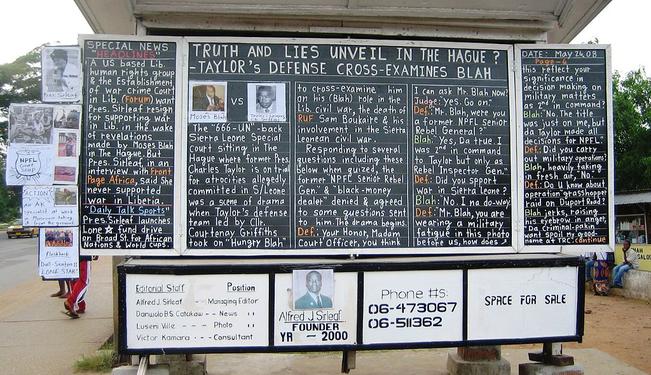 SPECIAL NEWS
"HEADLINES"
A US based Lib.
human rights group
& the Establishment
of war crime Court
in Lib. (Forum) want
Pres. Sirleaf resign
for supporting war
in Lib. in the wake
of revelations
made by Moses Blah
in The Hague. But
Pres. Sirleaf, in an
interview with Front
Page Africa, said She
never supported
war in Liberia.
"Daily Talk Sports"
Pres. Sirleaf launches
Lone ★ fund drive
on Broad St. for African
Nations & World Cups.
TRUTH AND LIES UNVEIL IN THE HAGUE?
-TAYLOR'S DEFENSE CROSS-EXAMINES BLAH
Moses Blah
VS
The "666-UN"-back
Sierra Leone Special
Court sitting in The
Hague where former Pres.
Charles Taylor is on trial
for atrocities allegedly
committed in S/Leone
was a scene of drama
when Taylor's defense
team led by Cllr.
Courtenay Griffiths
took on "Hungry Blah"
to cross-examine him
on his (Blah) role in the
Lib. civil war, the death of
RUF Sam Boukaire & his
involvement in the Sierra
Leonean civil war.
Responding to several
questions including these
below when quized, the
former "NPFL Senior Rebel
Gen." & "black-money
dealer" denied & agreed
to some questions sent
to him. The drama begins.
Def.: Your Honor, Madam
Court Officer, you think
I can ask Mr. Blah now?
Judge: Yes. Go on.
Def: Mr. Blah, were you
a former NPFL Senior
Rebel General?
Blah: Yes, Da true I
was in command
to Taylor but only as
Rebel Inspector Gen.
Def: Did you support
war in Sierra Leone?
Blah: No. I na do-way.
Def: Mr. Blah, you are
wearing a military
fatigue in this photo
before us, how does
DATE: May 24,08
Page-6
this reflect your
significance in
decision making on
military matters
as 2nd in command?
Blah: No. The title
was just on me, but
da Taylor made all
decisions for NPFL.
Def: Did you carry
out military operations?
Blah, heavily taking
in fresh air, No.
Def: Do U know about
operation grasshopper
raid on Duport Road?
Blah jerks, raising
his eyebrow in anger,
"Da criminal-pekin
want spoil my good-
name at TRC. continue
NPFL
Flashback
LONE STAR
Editorial Staff Position
Alfred J. Sirleaf - - Managing Editor
Danwudo B.S. Catakaw - - News "
Luseni Ville - - Photo "
Victor Kamara - - Consultant
Alfred J. Sirleaf
FOUNDER
YR - 2000
Phone #s:
06-473067
06-511362
SPACE FOR SALE